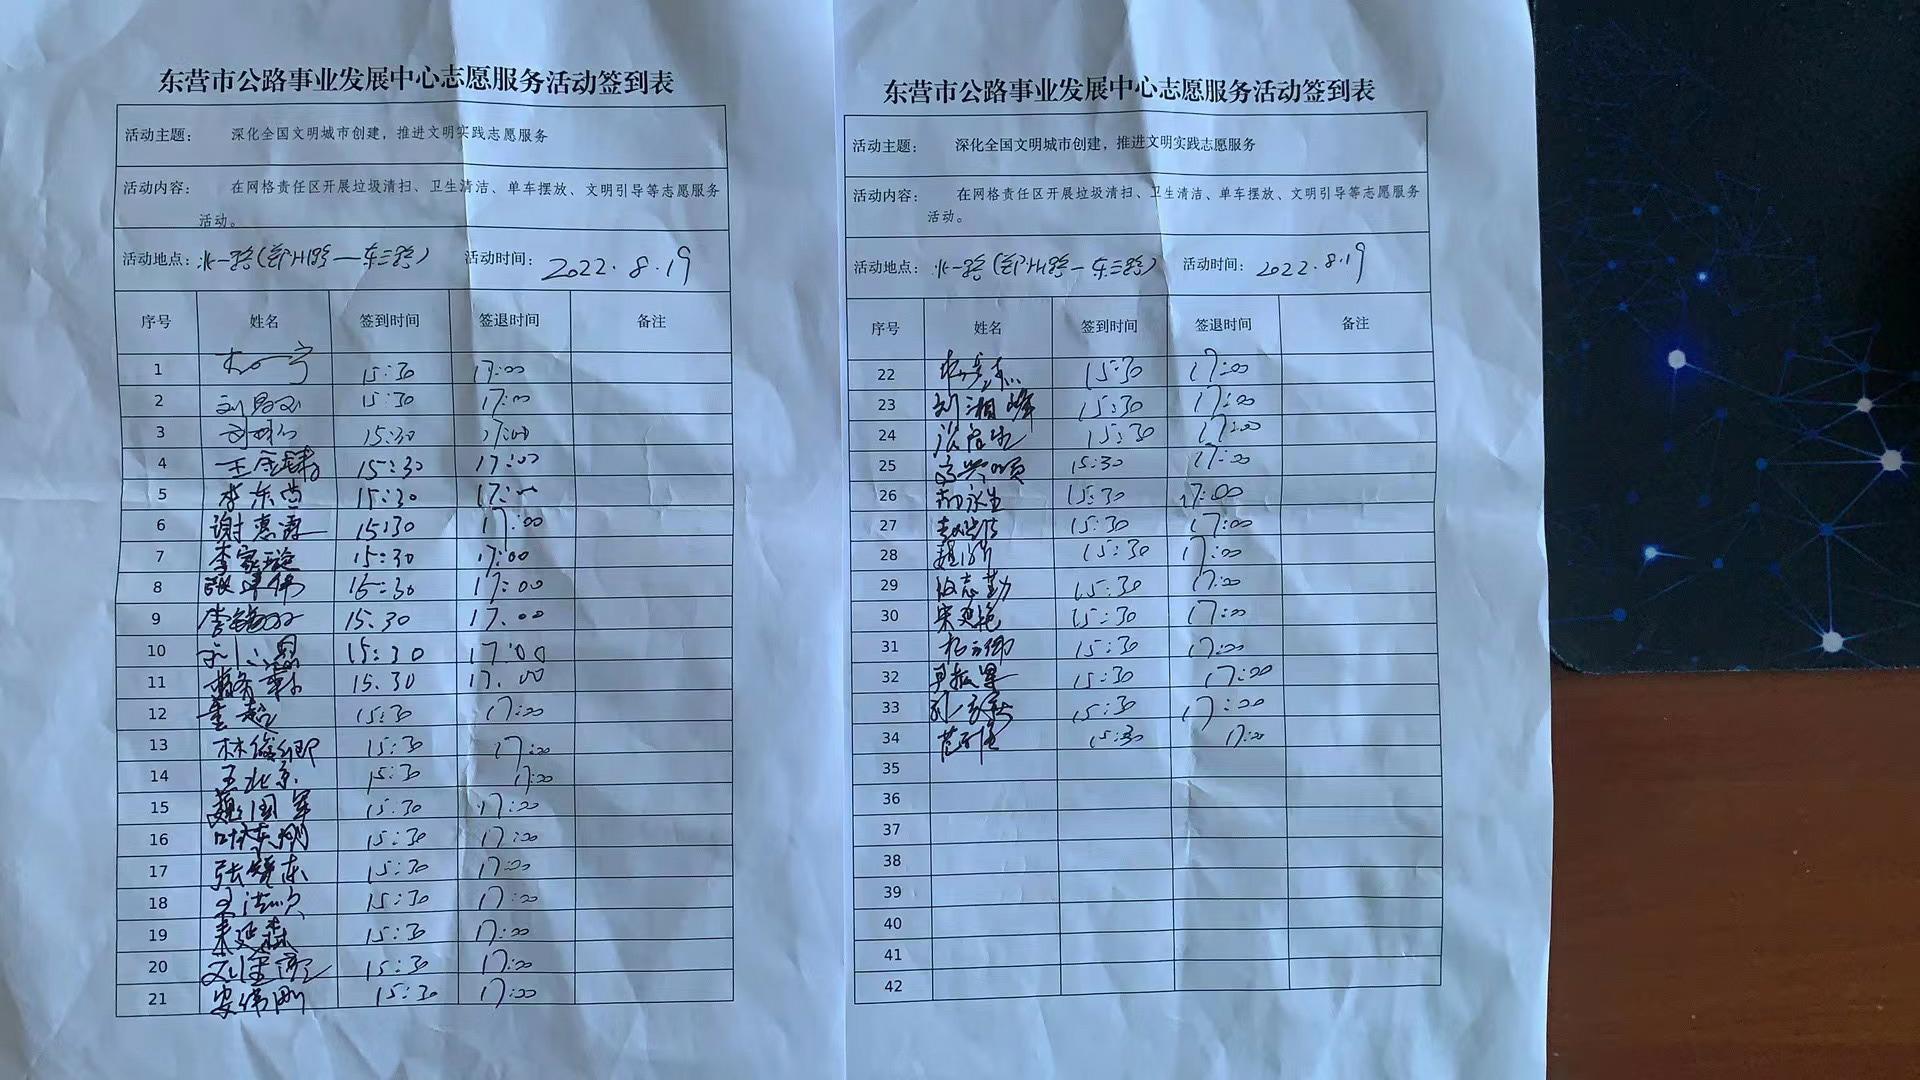 东营市公路事业发展中心志愿服务活动签到表
活动主题： 深化全国文明城市创建，推进文明实践志愿服务
活动内容： 在网格责任区开展垃圾清扫、卫生清洁、单车摆放、文明引导等志愿服务
活动。
活动地点：北一路(登州路—东三路) 活动时间：2022.8.19
序号 姓名 签到时间 签退时间 备注
1 15:30 17:00
2 15:30 17:00
3 15:30 17:00
4 15:30 17:00
5 李东 15:30 17:00
6 谢惠 15:30 17:00
7 李家璇 15:30 17:00
8 张建伟 15:30 17:00
9 李 15:30 17:00
10 15:30 17:00
11 15.30 17.00
12 董超 15:30 17:00
13 林俊卿 15:30 17:00
14 王北京 15:30 17:00
15 魏国军 15:30 17:00
16 叶东明 15:30 17:00
17 张晓东 15:30 17:00
18 15:30 17:00
19 秦延森 15:30 17:00
20 15:30 17:00
21 安伟刚 15:30 17:00
东营市公路事业发展中心志愿服务活动签到表
活动主题： 深化全国文明城市创建，推进文明实践志愿服务
活动内容： 在网格责任区开展垃圾清扫、卫生清洁、单车摆放、文明引导等志愿服务
活动。
活动地点：北一路(登州路—东三路) 活动时间：2022.8.19
序号 姓名 签到时间 签退时间 备注
22 15:30 17:00
23 刘湘峰 15:30 17:00
24 15:30 17:00
25 高兴顺 15:30 17:00
26 郝永生 15:30 17:00
27 15:30 17:00
28 15:30 17:00
29 志勤 15:30 17:00
30 宋延艳 15:30 17:00
31 15:30 17:00
32 15:30 17:00
33 15:30 17:00
34 15:30 17:00
35
36
37
38
39
40
41
42